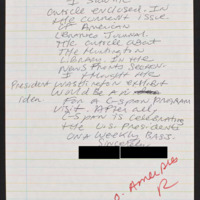 I saw the
article enclosed. In
the current issue
of American
Libraries Journal.
The article about
the Huntington
Library. In the
News Prints Section.
I thought the
President Washington exhibit
Would be an
idea For a C-Span program
Visit. After all
C-Span is celebrating
the U.S. Presidents
On a Weekly Basis.
Sincerely